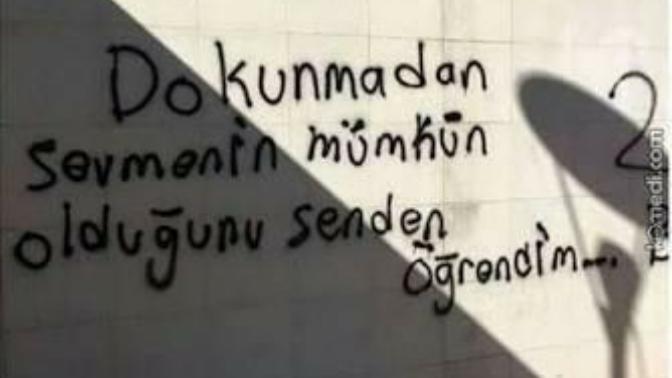 Dokunmadan
sevmenin mümkün
olduğunu senden
öğrendim...
2